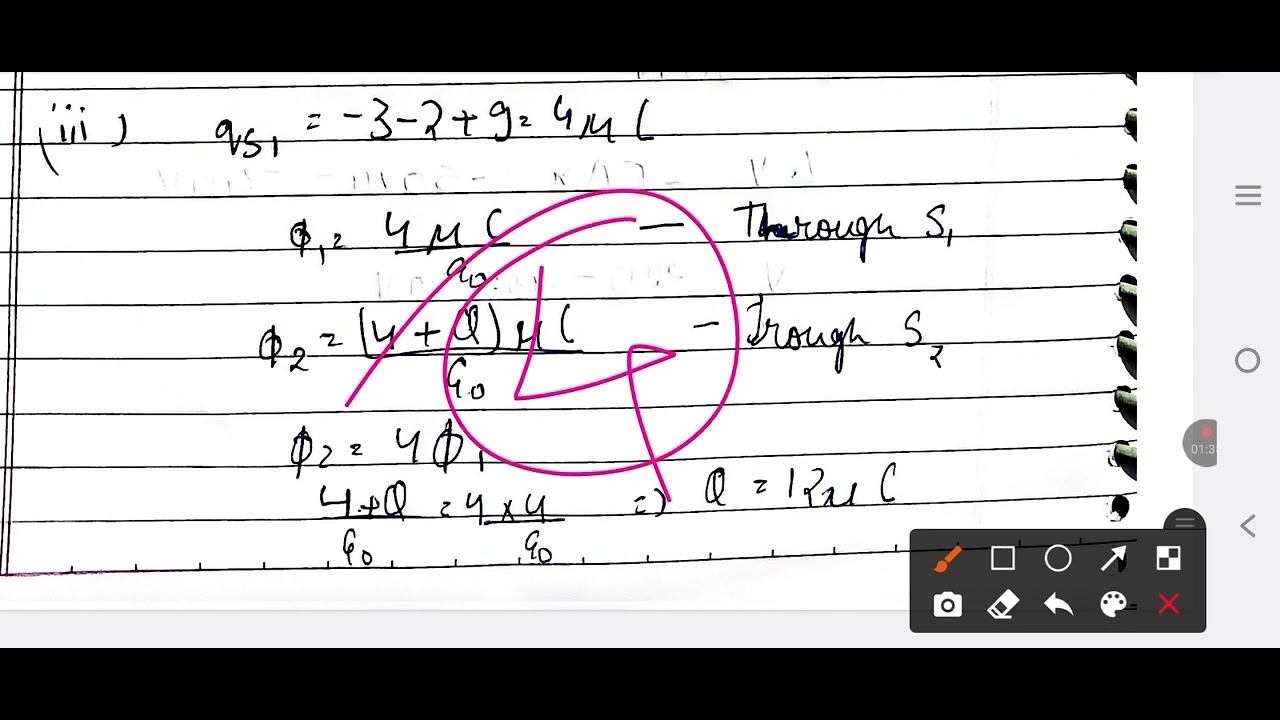 (iii) qs₁ = -3-2+9= 4μC
ϕ₁= 4μC/ε₀ — Through S₁
ϕ₂= (4+Q)μC/ε₀ — Trough S₂
ϕ₂= 4ϕ₁
4+Q/ε₀ = 4×4/ε₀ => Q = 12μC
01:3